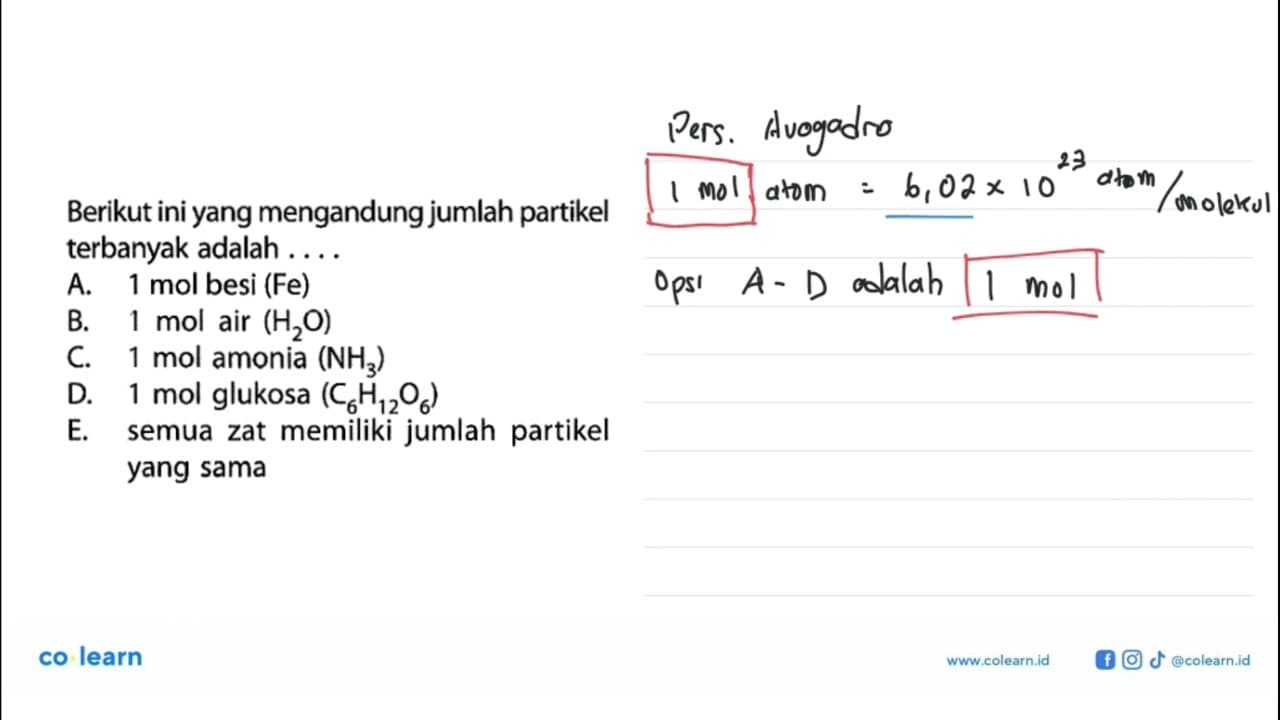 Berikut ini yang mengandung jumlah partikel
terbanyak adalah . . . .
A. 1 mol besi (Fe)
B. 1 mol air (H₂O)
C. 1 mol amonia (NH₃)
D. 1 mol glukosa (C₆H₁₂O₆)
E. semua zat memiliki jumlah partikel
yang sama
Pers. Avogadro
1 mol atom = 6,02 × 10²³ atom/molekul
Opsi A - D adalah 1 mol
co learn
www.colearn.id
@colearn.id